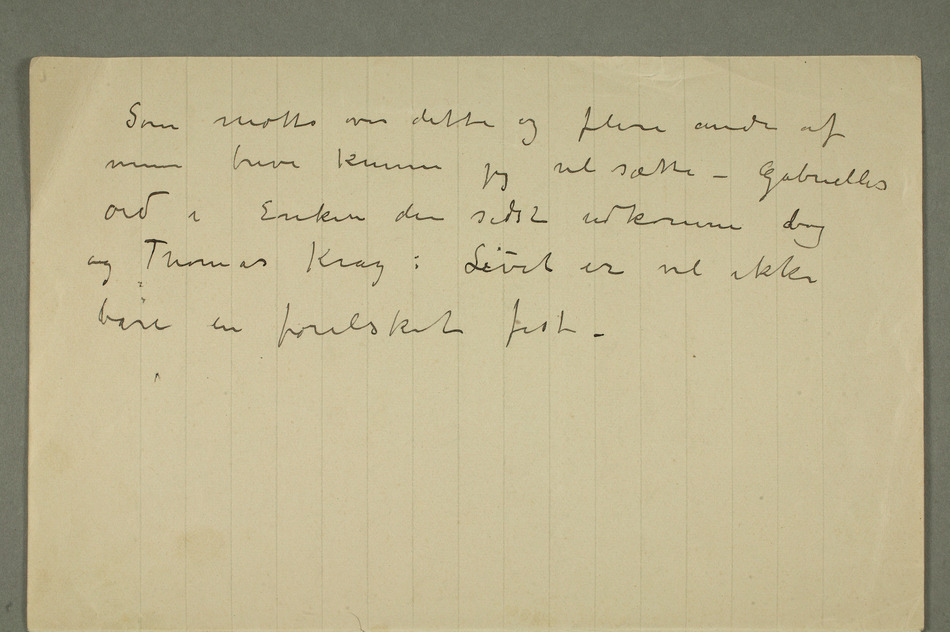 Som motto over dette og flere andre af
mine breve kunne jeg vel sætte – Gabrielles
ord i Enken den sidst udkomne bog
ag Thomas Krag: Livet er vel ikke
bare en forelsket fest –